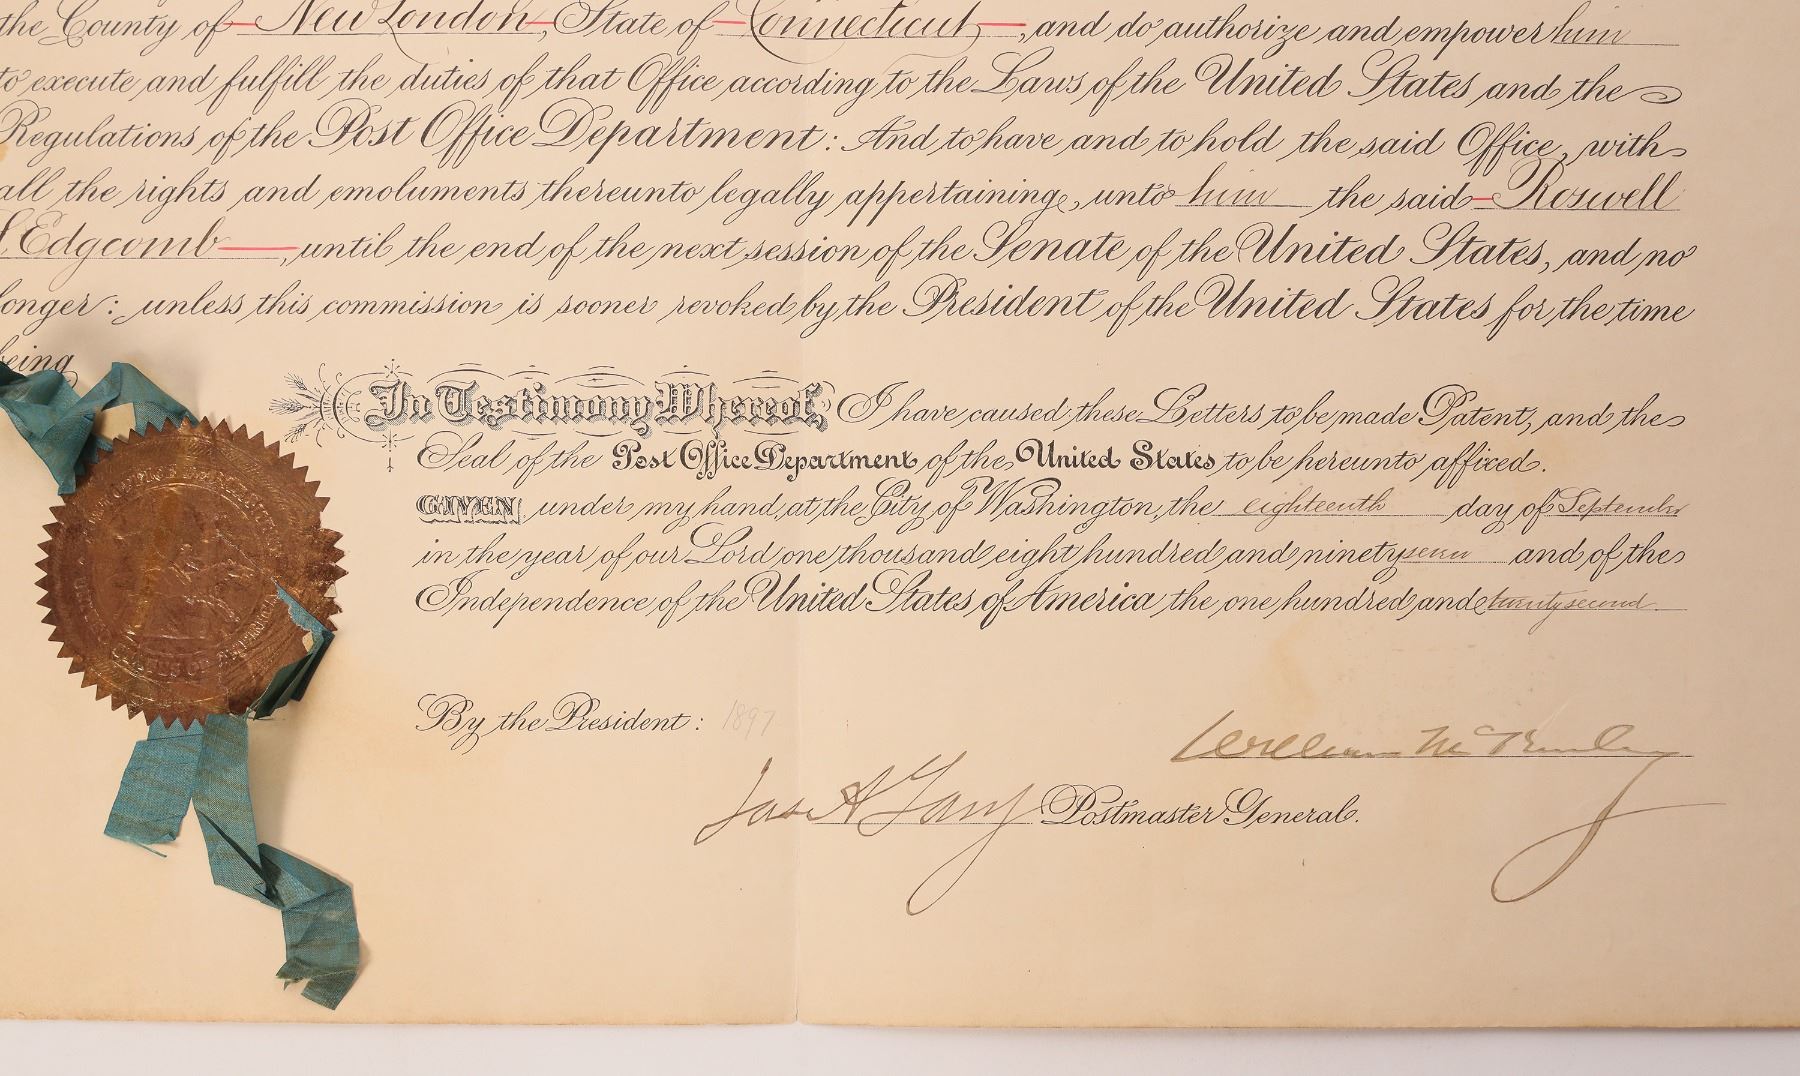 the County of New London, State of Connecticut, and do authorize and empower him
to execute and fulfill the duties of that Office according to the Laws of the United States and the
Regulations of the Post Office Department: And to have and to hold the said Office, with
all the rights and emoluments thereunto legally appertaining, unto him the said Roswell
Edgcomb, until the end of the next session of the Senate of the United States, and no
longer: unless this commission is sooner revoked by the President of the United States for the time
being
In Testimony Whereof, I have caused these Letters to be made Patent, and the
Seal of the Post Office Department of the United States to be hereunto affixed.
GIVEN under my hand, at the City of Washington, the eighteenth day of September
in the year of our Lord one thousand eight hundred and ninety seven and of the
Independence of the United States of America the one hundred and twenty second.
By the President: 1897
William McKinley
Jas A Gary Postmaster General.